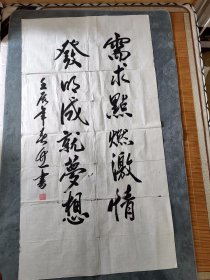 需求點燃激情
發明成就夢想
壬辰年
書